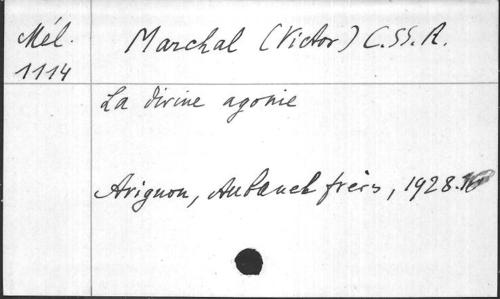 Mél. Marchal (Victor) C.SS.R.
1114
La divine agonie
Avignon, Aubanel frères, 1928.